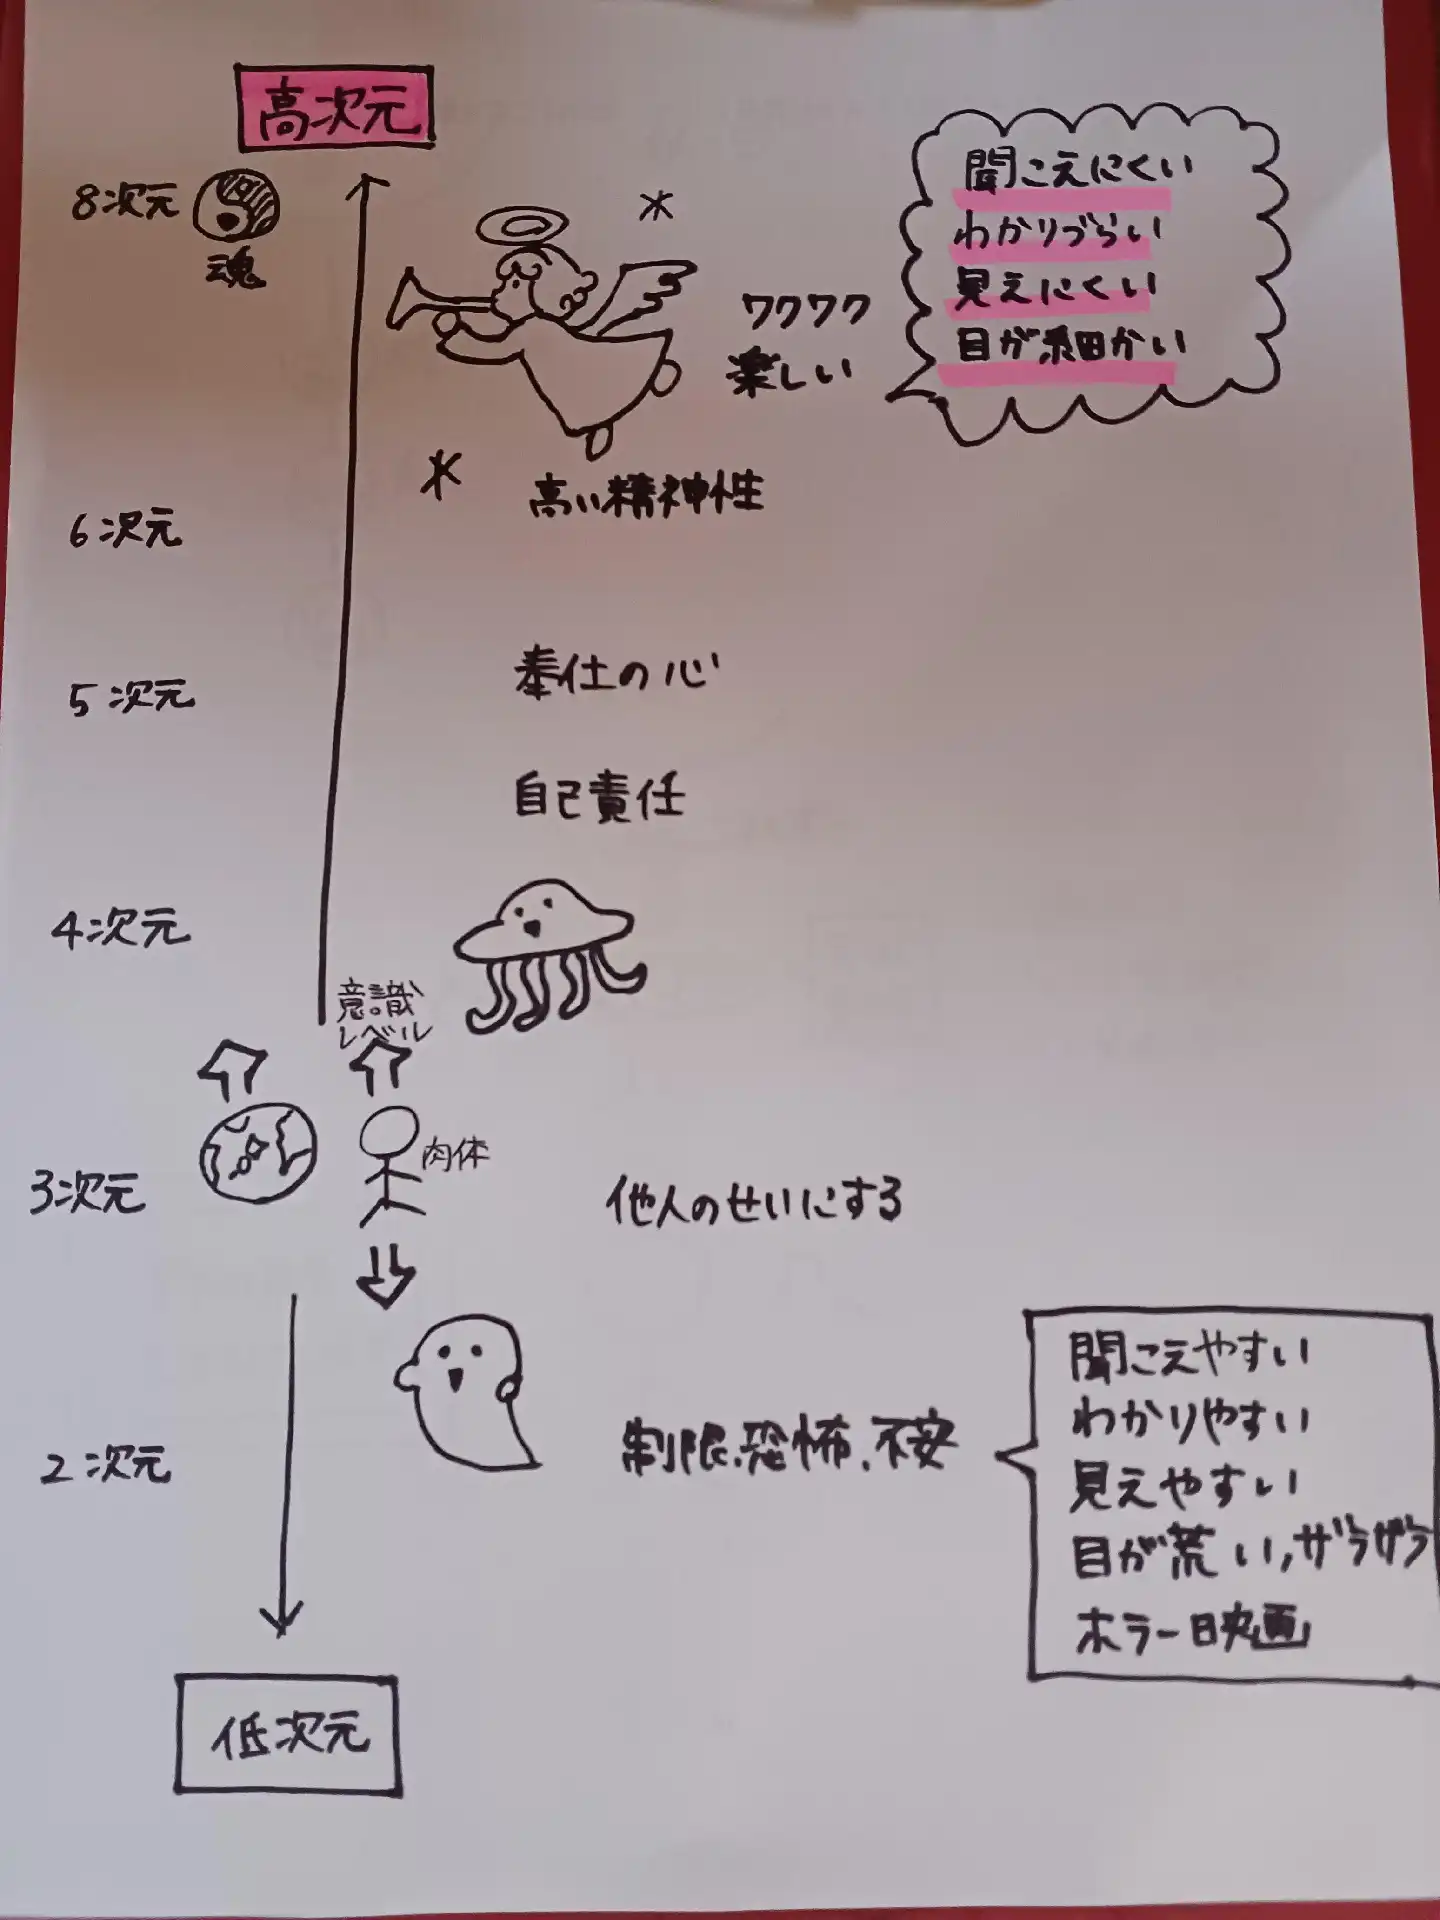 高次元
8次元
魂
聞こえにくい
わかりづらい
見えにくい
目が細かい
ワクワク
楽しい
高い精神性
6次元
5次元
奉仕の心
自己責任
4次元
意識
レベル
肉体
3次元
他人のせいにする
2次元
制限、恐怖、不安
聞こえやすい
わかりやすい
見えやすい
目が荒い,ザラザラ
ホラー映画
低次元